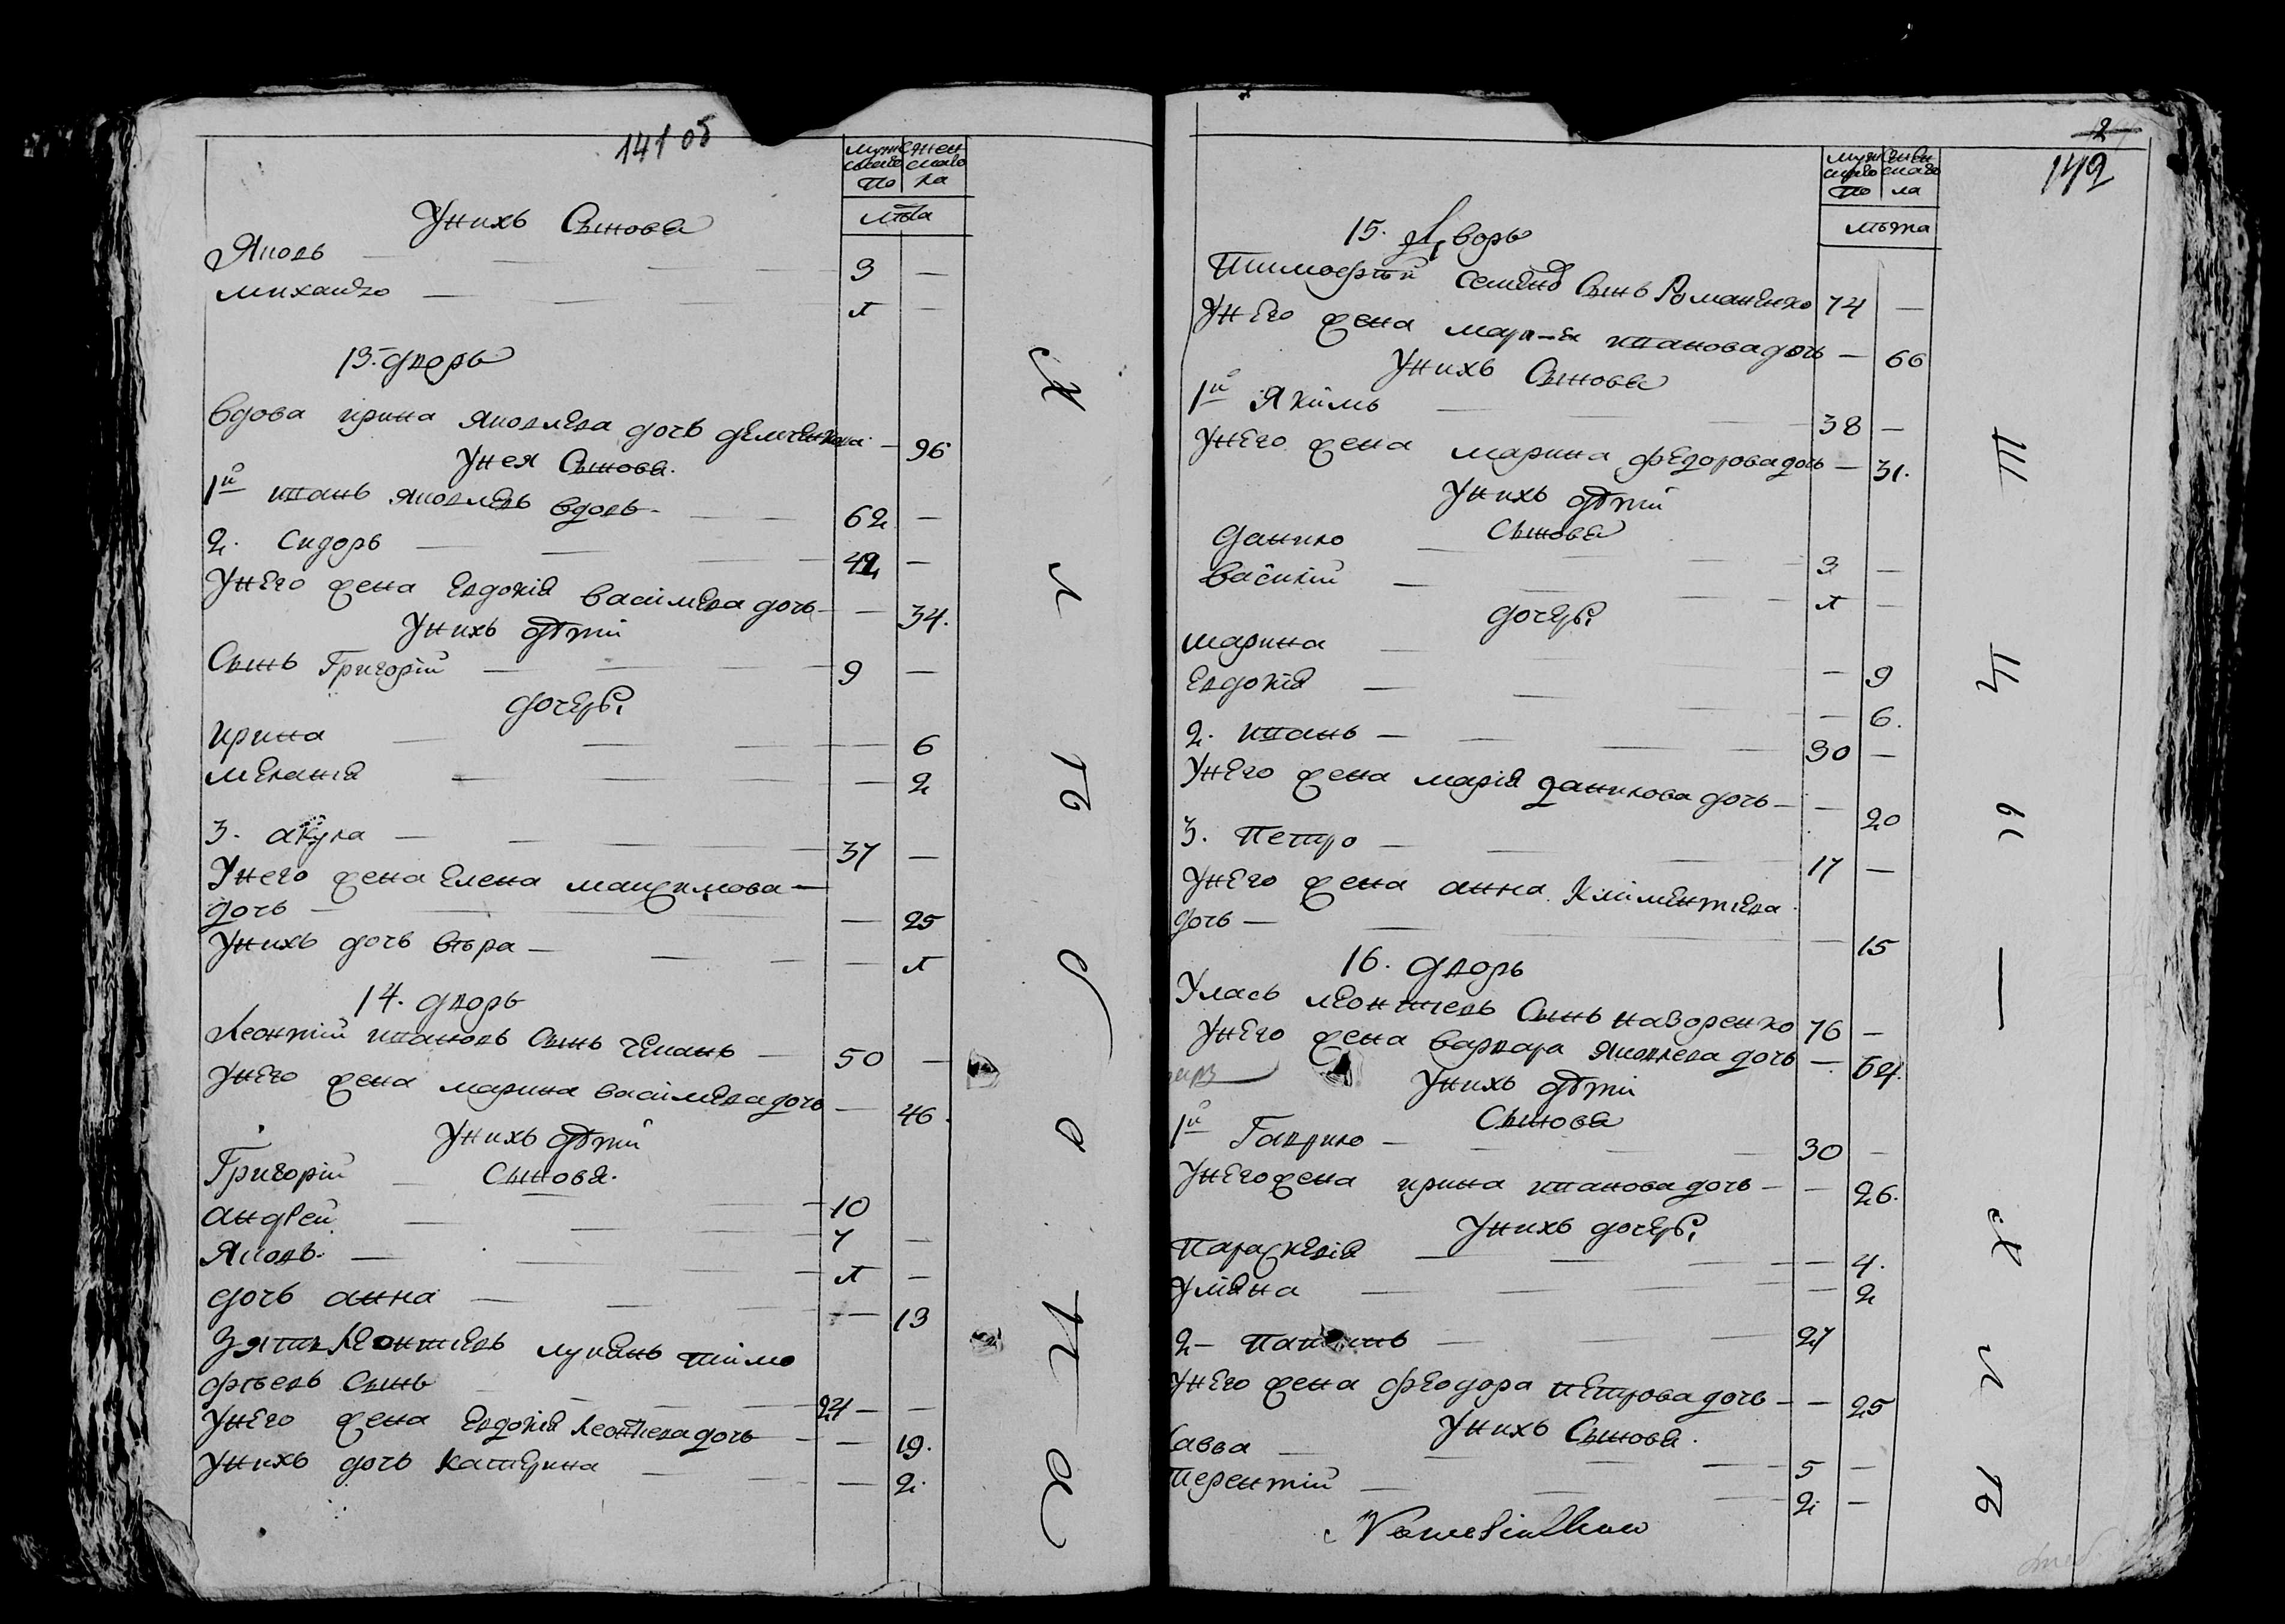 141 об
мужескаго женскаго
по ла
лѣта
У нихъ Сынове
Яковъ — 3 —
михайло — л —
13. дворъ
Вдова ирина яковлева дочь демченкова — 96
У нея Сынове.
1й иванъ яковлевъ вдовъ — 62 —
2. Сидоръ — 42 —
У него жена Евдокія Васілиева дочь — 34.
У нихъ дѣти
Сынъ Григорій — 9 —
дочери
ирина — 6
меланія — 2
3. акула — 37 —
У него жена Елена максимова —
дочь — 25
У нихъ дочь вѣра — л
14. дворъ
Леонтій ивановъ Сынъ чепань — 50 —
У него жена марина васілиева дочь — 46.
У нихъ дѣти
Сынове.
Григорій — 10
андрей — 7 —
Яковъ. — л —
дочь анна — 13
Зять Леонтиевъ лукянъ тимо
фѣевъ Сынъ — 24 —
У него жена Евдокія Леонтиева дочь — 19.
У нихъ дочь катерина — 2.
2
142
мужескаго женскаго
по ла
лѣта
15. Дворъ
Тимофѣй Семеновъ Сынъ Романенко 74 —
У него жена марія иванова дочь — 66
У нихъ Сынове
1й Якимъ — 38 —
У него жена марина федорова дочь — 31.
У нихъ дѣти
Сынове
данило — 3 —
василій — л —
дочери
марина — 9
Евдокія — 6.
2. иванъ — 30 —
У него жена марія данилова дочь — 20
3. Петро — 17 —
У него жена анна Климентиева
дочь — 15
16. дворъ
Уласъ леонтиевъ Сынъ назоренко 76 —
У него жена варвара яковлева дочь — 64.
У нихъ дѣти
Сынове
1й Гаврило — 30 —
У него жена ирина иванова дочь — 26.
У нихъ дочери
Параскевія — 4.
Уліяна — 2
2 — 27
У него жена феодора петрова дочь — 25
У нихъ Сынове.
Савва — 5 —
Терентій — 2 —